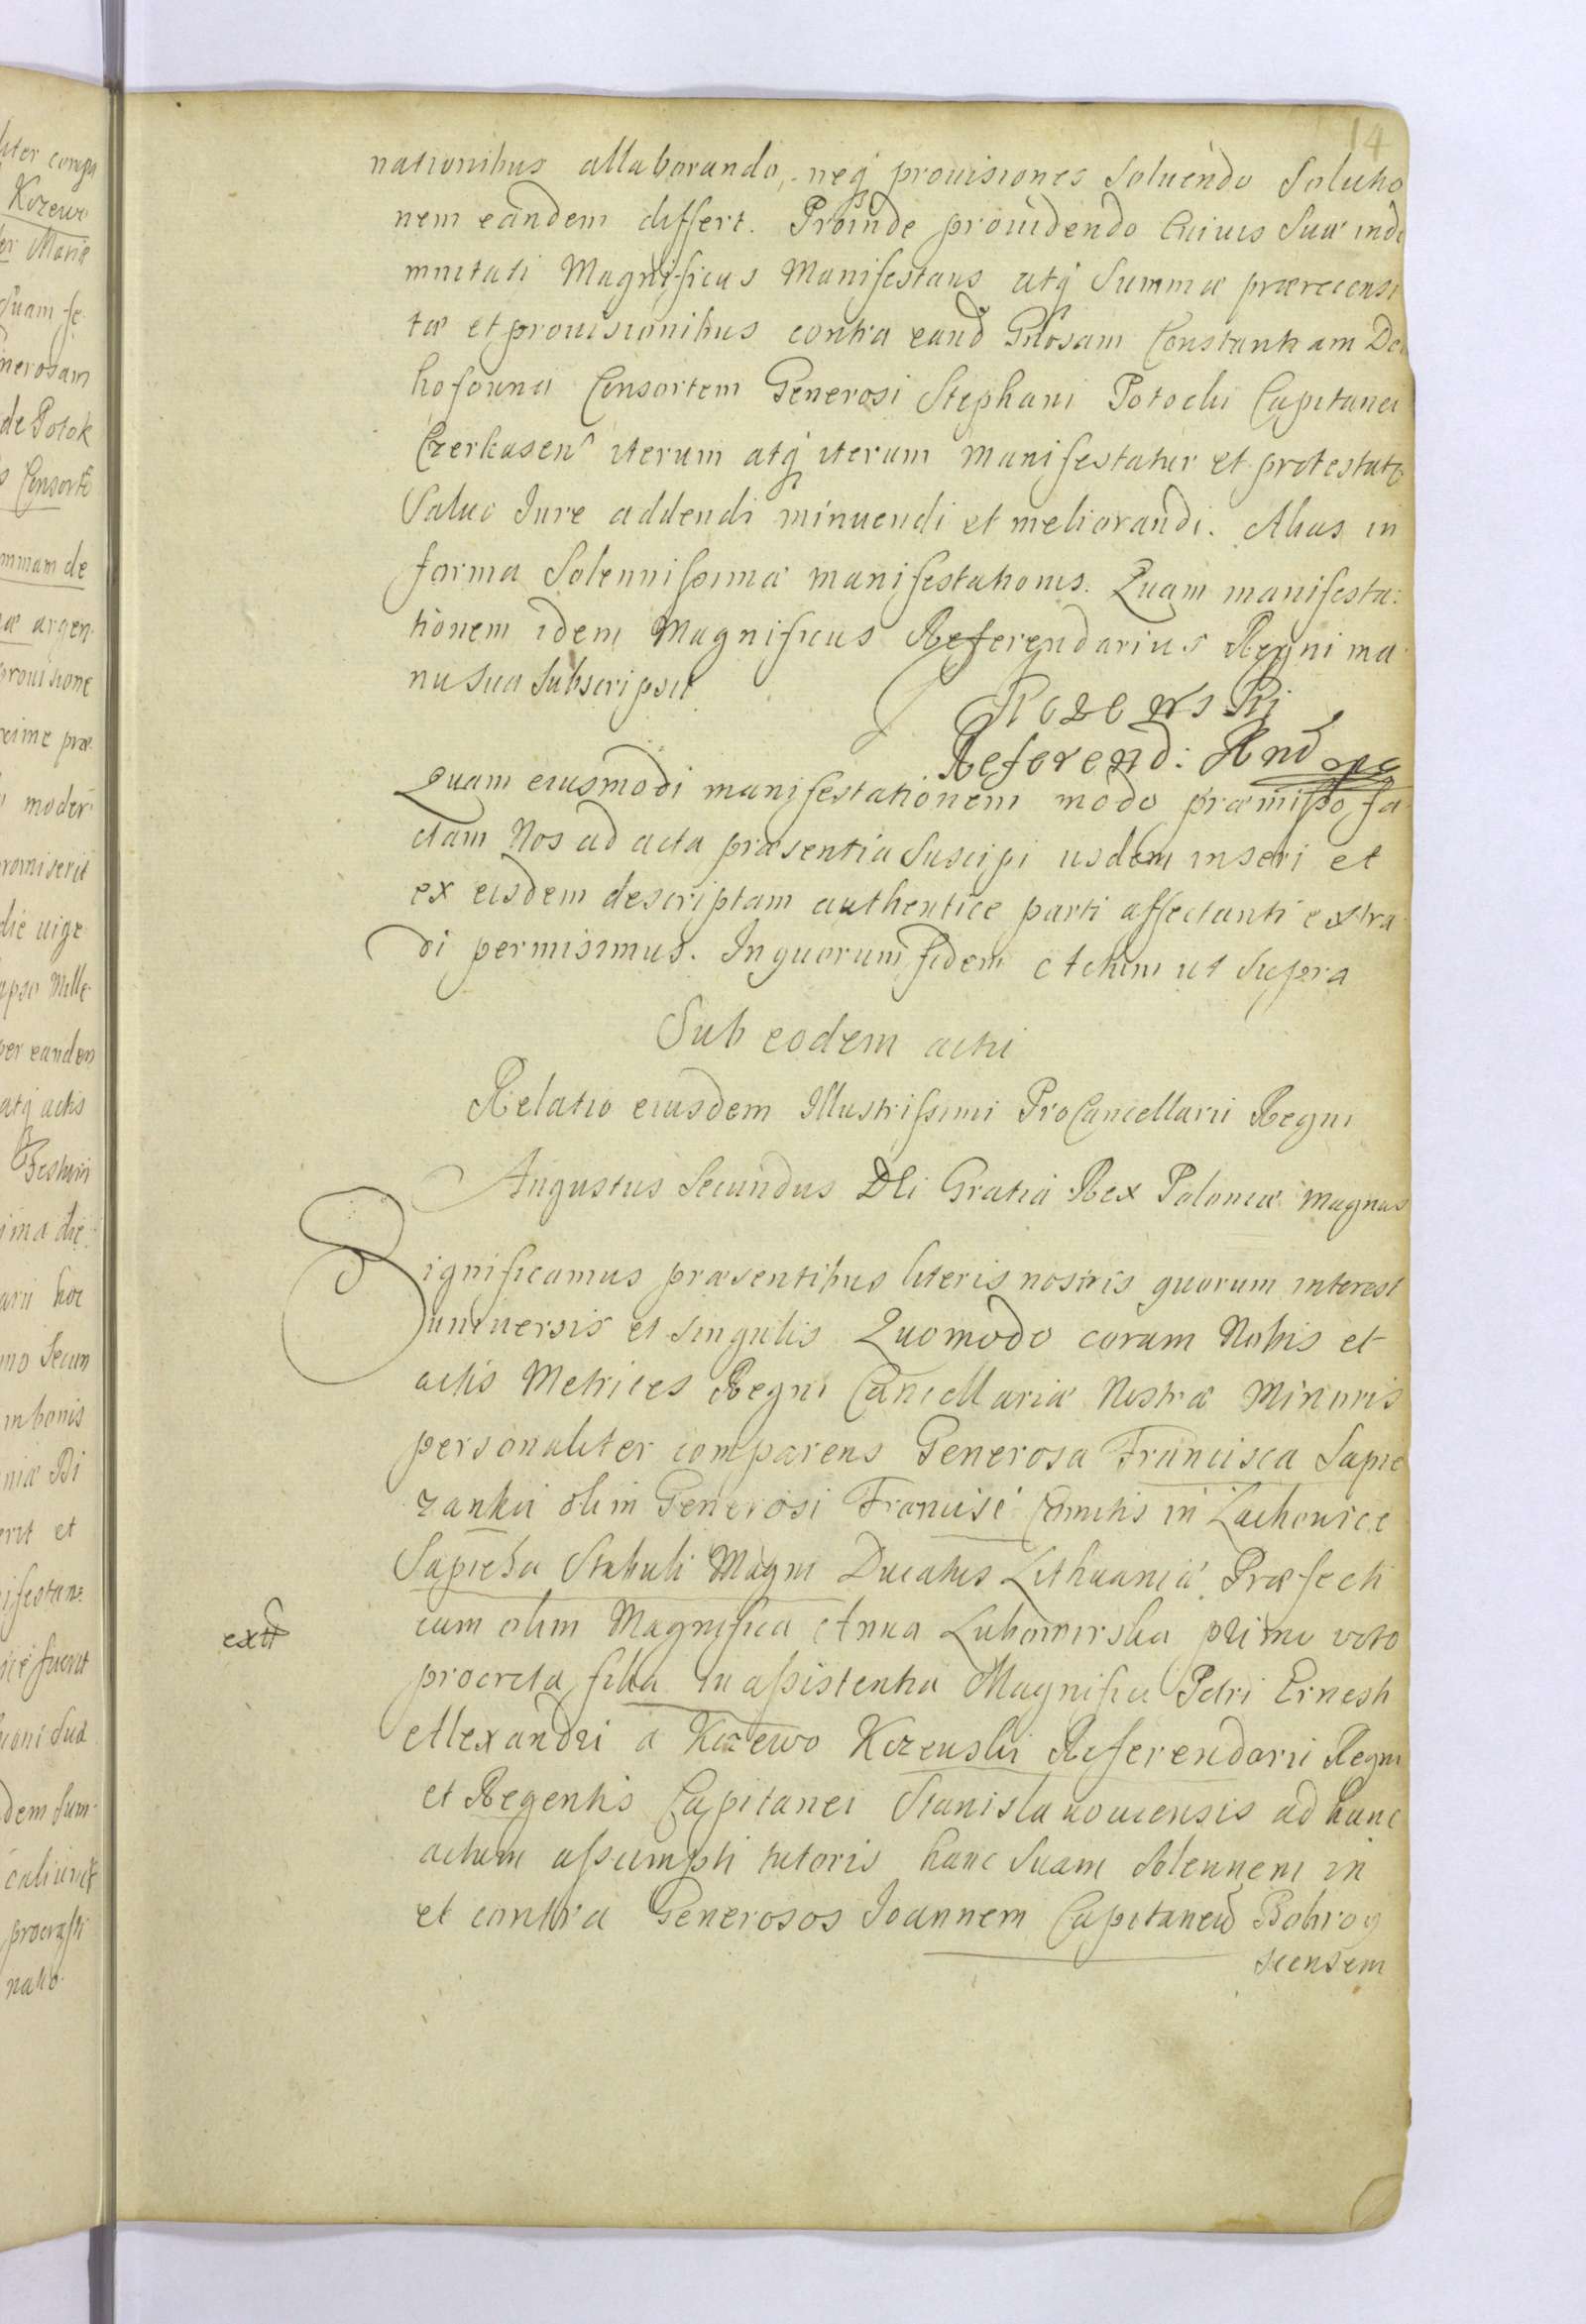 14
nationibus allaborando, neq́ prouisiones Soluendo Solutio
nem eandem differt. Proinde prouidendo Cuiuis Suæ inde
mnitati Magnificus Manifestans atq́ Summæ prærecensi
tæ et prouisionibus contra eand Gnosam Constantiam De
Consortem Generosi Stephani Potocki Capitanei
Czerkasen iterum atq́ iterum manifestatur et protestatr
Saluo Iure addendi minuendi et meliorandi. Alias in
forma Solennissimæ manifestationis. Quam manifesta:
tionem idem Magnificus Referendarius Regni ma
nu Sua Subscripsit
Rzewski
Referend:
Quam eiusmodi manifestationem modo præmisso fa
ctam Nos ad acta præsentia Suscipi iisdem inseri et
ex eisdem descriptam authentice parti affectanti extra
di permisimus. In quorum fidem Actum ut Supra
Sub eodem actu
Relatio eiusdem Illustrissimi ProCancellarii Regni
Augustus Secundus DEi Gratia Rex Poloniæ Magnus
Significamus præsentibus literis nostris quorum interest
uniuersis et singulis Quomodo coram Nobis et
actis Metrices Regni Cancellariæ Nostræ Minoris
personaliter comparens Generosa Francisca Sapie
zanka olim Generosi Francisi Comitis in Lachowice
Sapieha Stabuli Magni Ducatus Lithuaniæ Præfecti
ext
cum olim Magnifica Anna Lubomirska primi voto
procreta filia in assistentia Magnifici Petri Ernesti
Alexandri a Krzewo Krzeuski Referendarii Regni
et Regentis Capitanei Stanislauouiensis ad hunc
actum assumpti tutoris hanc Suam Solennem in
et contra Generosos Ioannem Capitaneū Bobroy
scensem